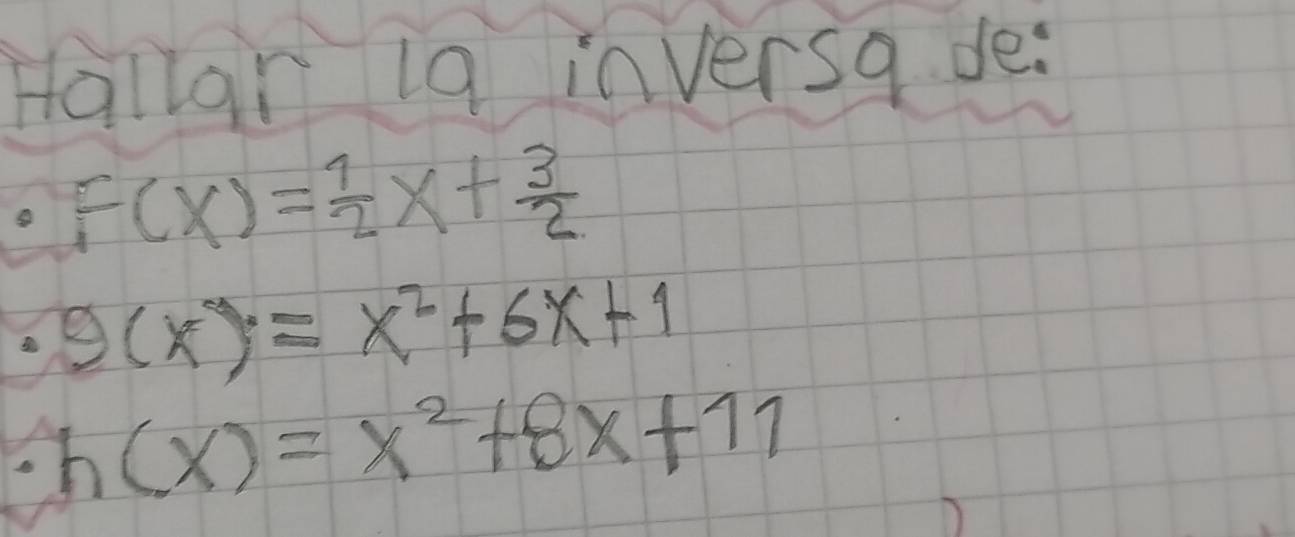 Hallar la inversa de:
• F(x) = 1/2 x + 3/2
• g(x) = x² + 6x + 1
• h(x) = x² + 8x + 11